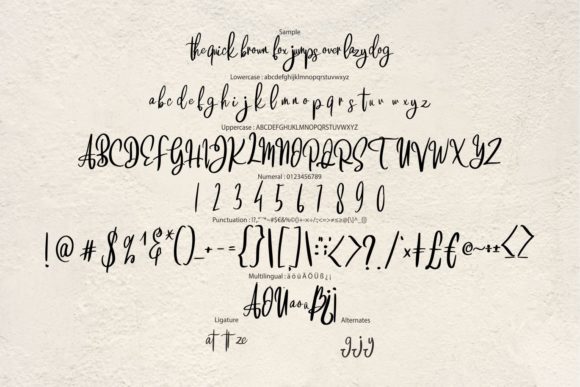 Sample
the quick brown fox jumps over lazy dog
Lowercase : abcdefghijklmnopqrstuvwxyz
a b c d e f g h i j k l m n o p q r s t u v w x y z
Uppercase : ABCDEFGHIJKLMNOPQRSTUVWXYZ
A B C D E F G H I J K L M N O P Q R S T U V W X Y Z
Numeral : 0123456789
1 2 3 4 5 6 7 8 9 0
Multilingual : ä ö ü Ä Ö Ü ß ¿ ¡
Ligature Alternates
at tt ze g j y